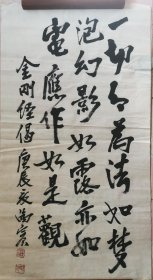 一切有為法如夢
泡幻影如露亦如
電應作如是觀
金剛經偈 庚辰夏